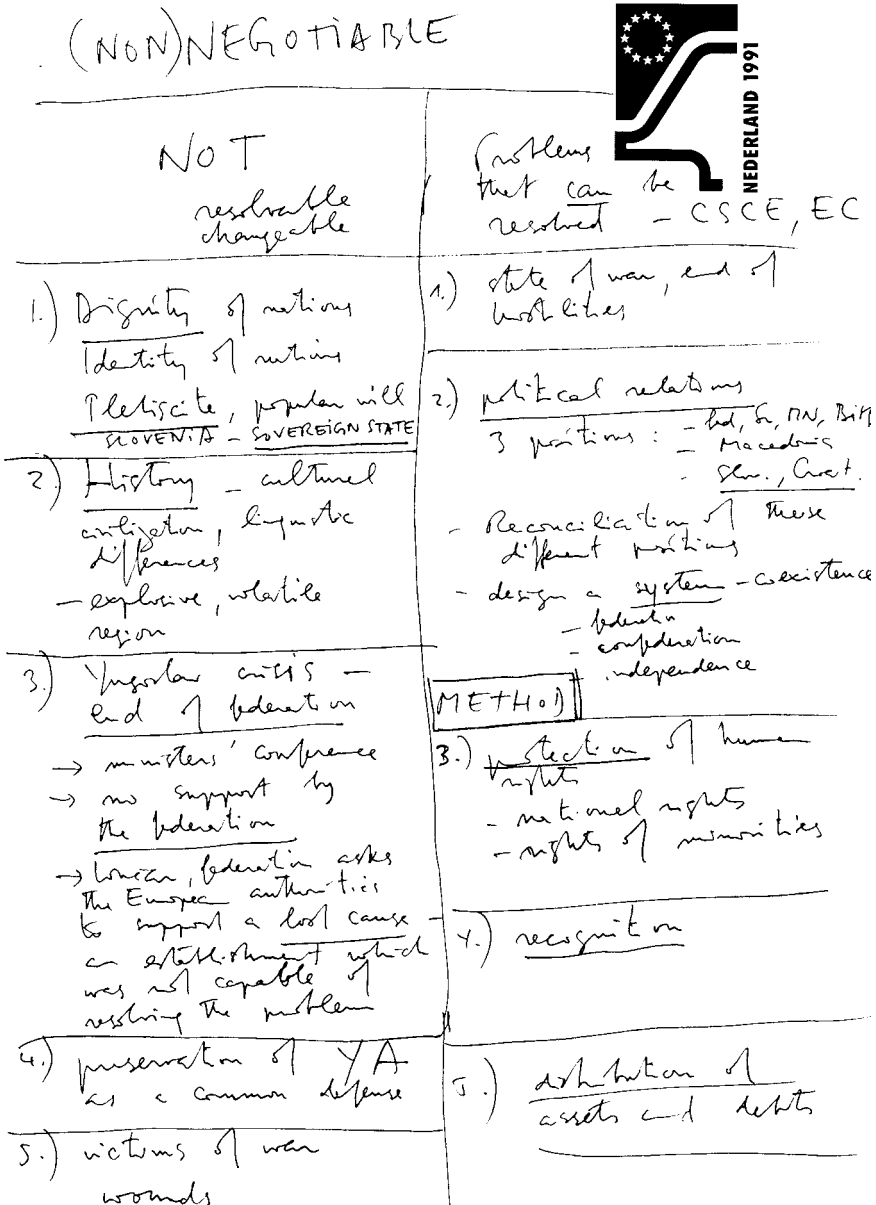 (NON)NEGOTIABLE
NEDERLAND 1991
NOT
resolvable
changeable
1.) Dignity of nations
Identity of nations
Plebiscite, popular will
SLOVENIA - SOVEREIGN STATE
2.) History - cultural
civilization, linguistic
differences
- explosive, volatile
region
3.) Yugoslav crisis -
end of federation
→ ministers' conference
→ no support by
the federation
→ federation asks
the European authorities
to support a lost cause -
an establishment which
was not capable of
resolving the problem
4.) preservation of YA
as a common defense
5.) victims of war
wounds
Problems
that can be
resolved - CSCE, EC
1.) state of war, end of
hostilities
2.) political relations
3 positions: - Sr, MN, BiH
- Macedonia
- Slov., Croat.
- Reconciliation of these
different positions
- design a system - coexistence
- federation
- confederation
- independence
METHOD
3.) protection of human
rights
- national rights
- rights of minorities
4.) recognition
5.) distribution of
assets and debts